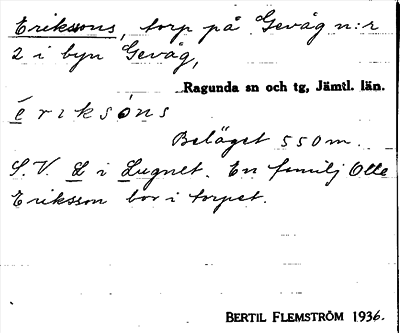 Erikssons, torp på Gevåg n:r
2 i byn Gevåg,
Ragunda sn och tg, Jämtl. län.
é r i k s ó n s
Beläget 550 m.
S.V. L i Lugnet. En familj Olle
Eriksson bor i torpet.
BERTIL FLEMSTRÖM 1936.